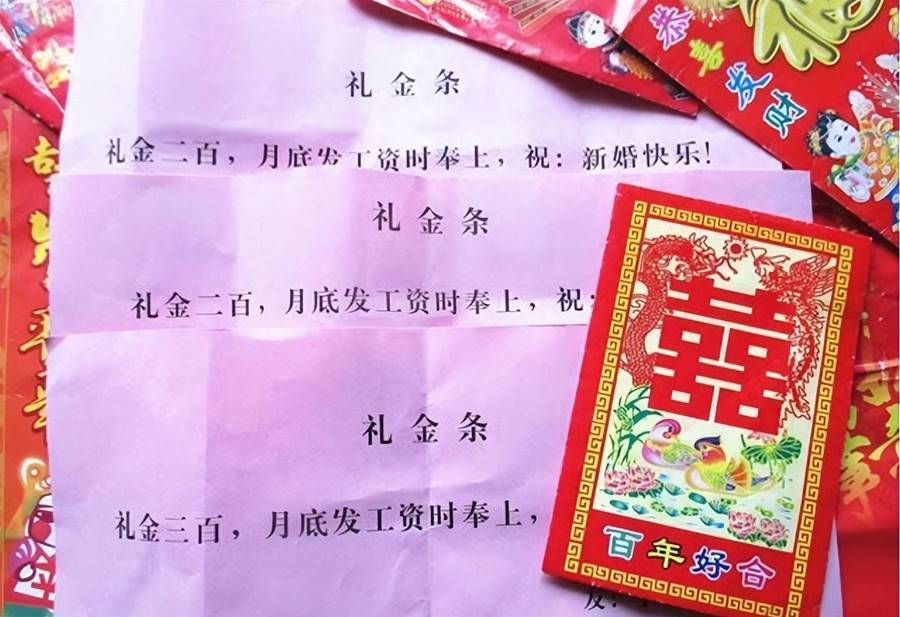 恭喜发财
福
礼金条
礼金二百，月底发工资时奉上，祝：新婚快乐！
礼金条
礼金二百，月底发工资时奉上，祝：
礼金条
礼金三百，月底发工资时奉上，
友：
囍
百年好合